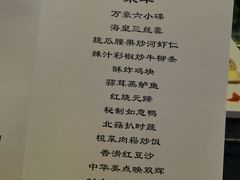 菜单
万豪六小碟
海皇三丝羹
脆瓜腰果炒河虾仁
辣汁彩椒炒牛柳条
酥炸鸡块
蒜茸蒸鲈鱼
红烧元蹄
秘制如意鸭
北菇扒时蔬
榄菜肉崧炒饭
香滑红豆沙
中华美点映双辉